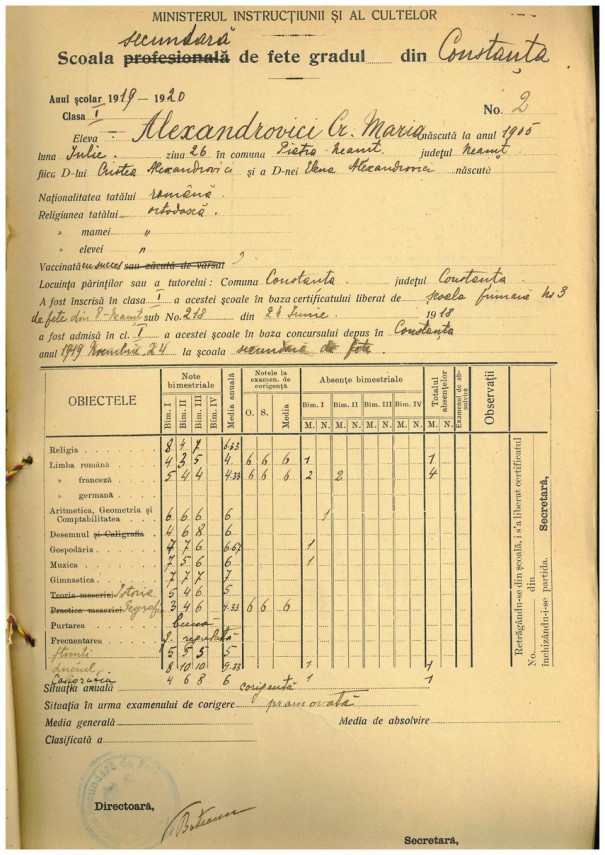 MINISTERUL INSTRUCȚIUNII ȘI AL CULTELOR
secundară
Scoala profesională de fete gradul din Constanța
Anul școlar 1919 – 1920
Clasa I
No. 2
Eleva Alexandrovici Cr. Maria născută la anul 1905
luna Iulie ziua 26 în comuna Piatra Neamț județul Neamț
fiica D-lui Cristea Alexandrovici și a D-nei Elena Alexandrovici născută
Naționalitatea tatălui română
Religiunea tatălui ortodoxă
» mamei "
» elevei "
Vaccinată cu succes sau zăcută de vărsat
Locuința părinților sau a tutorelui: Comuna Constanta județul Constanta
A fost înscrisă în clasa I a acestei școale în baza certificatului liberat de școala primară No 3
de fete din P-Neamț sub No 218 din 26 Iunie 1918
a fost admisă în cl. I a acestei școale în baza concursului depus în Constanța
anul 1919 Noembrie 24 la școala secundară de fete
OBIECTELE Note bimestriale Media anuală Notele la examen. de corigență Absențe bimestriale Totalul absențelor Examenul de absolvire Observații
Bim. I Bim. II Bim. III Bim. IV O. S. Media Bim. I Bim. II Bim. III Bim. IV
M. N. M. N. M. N. M. N. M. N.
Religia 8 4 7 6.33
Limba română 4 3 5 4. 6 6 6 1 1
» franceză 5 4 4 4.33 6 6 6 2 2 4
» germană
Aritmetica, Geometria și
Comptabilitatea 6 6 6 6 1
Desemnul și Caligrafia 4 6 8 6
Gospodăria 7 7 6 6.67 1
Muzica 7 5 6 6 1
Gimnastica 7 7 7 7
Teoria meseriei Istoria 5 4 6 5
Practica meseriei Geografi 3 4 6 4.33 6 6 6
Purtarea bună
Frecuentarea regulată
Științi 5 5 5 5
Lucrul 8 10 10 9.33 1 1
Caligrafia 4 6 8 6 1 1
Situația anuală corigentă
Situația în urma examenului de corigere promovată
Media generală Media de absolvire
Clasificată a
Retrăgându-se din școală, i s'a liberat certificatul
No. din
închizându-i-se partida. Secretară,
Directoară,
Secretară,